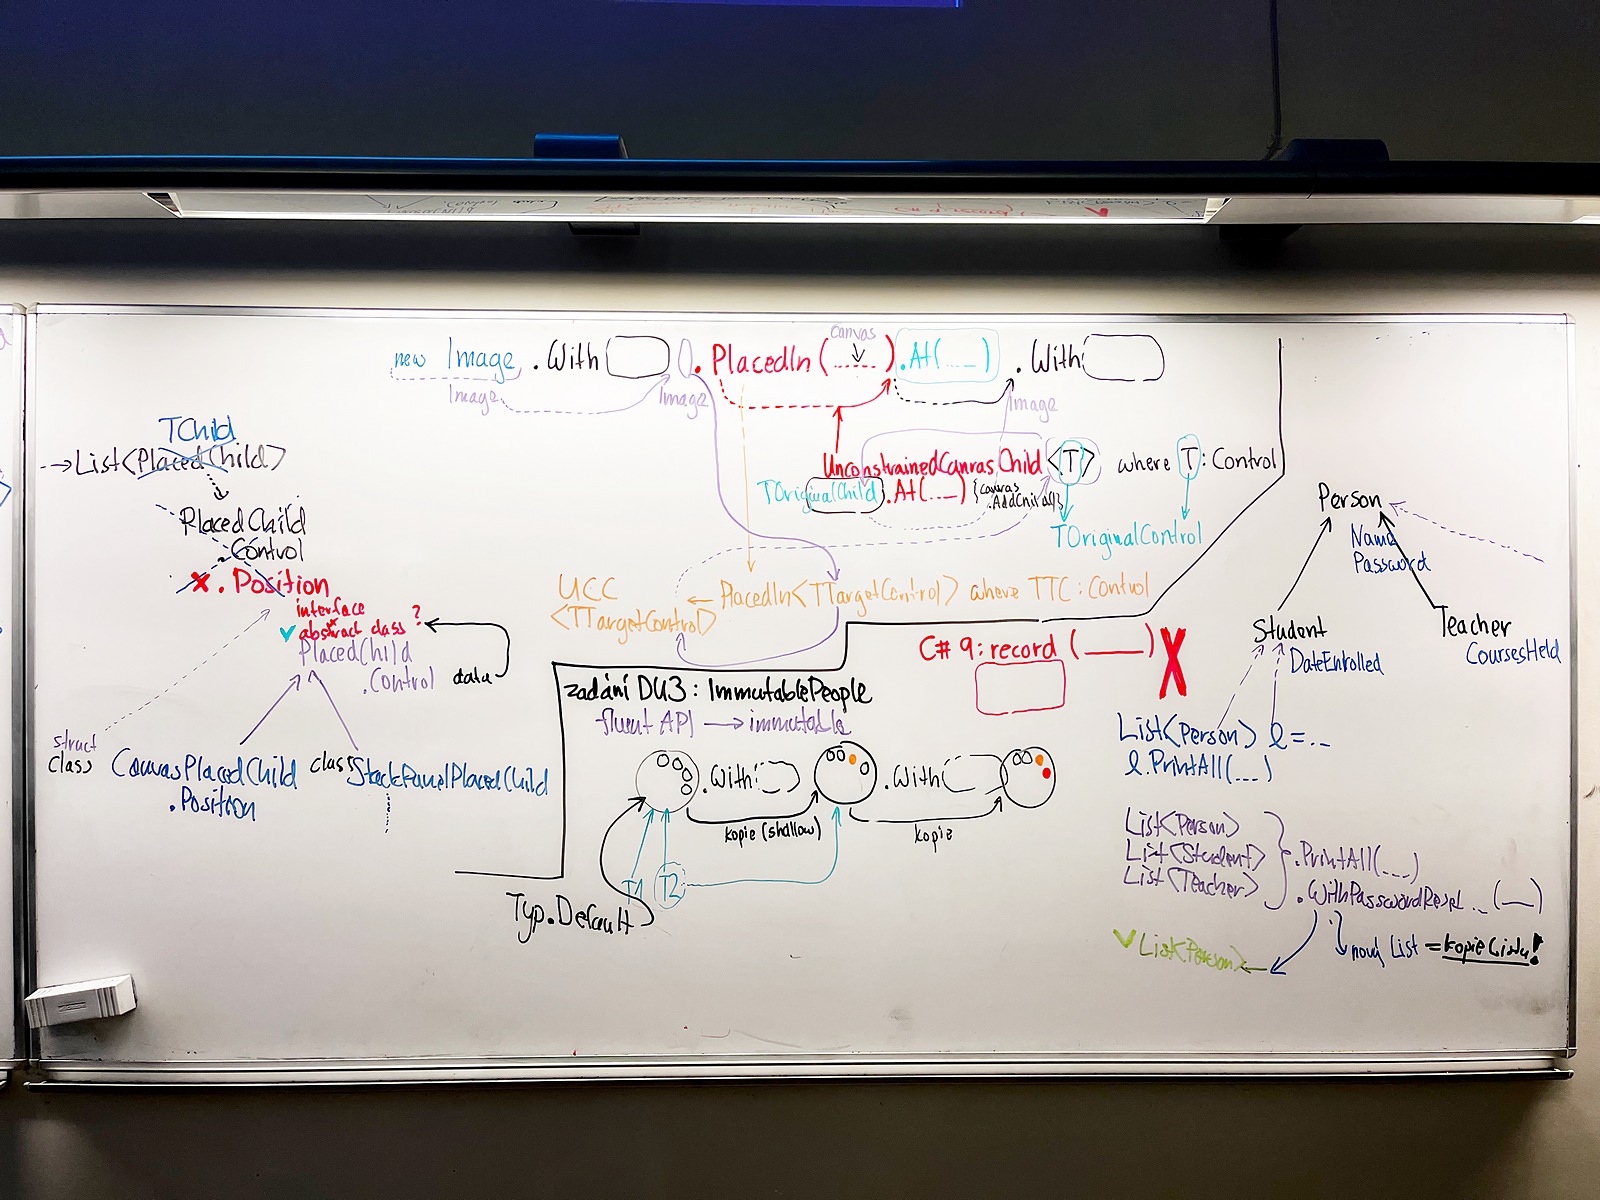 new Image .With . PlacedIn (......) .At(....) . With
canvas
Image Image Image
TChild
List<PlacedChild>
PlacedChild
.Control
x .Position
interface
abstract class ?
PlacedChild
.Control
data
struct
class
CanvasPlacedChild
.Position
class StackPanelPlacedChild
UnconstrainedCanvasChild <T> where T : Control
TOriginalChild .At(....) {canvas
.AddChild()}
TOriginalControl
UCC
<TTargetControl>
PlacedIn<TTargetControl> where TTC : Control
C# 9: record (____) X
zadání DU3 : ImmutablePeople
fluent API → immutable
.With .With
kopie (shallow) kopie
T1 T2
Typ.Default
Person
Name
Password
Student
DateEnrolled
Teacher
CoursesHeld
List<Person> l = ...
l.PrintAll(....)
List<Person>
List<Student>
List<Teacher>
.PrintAll(....)
.WithPasswordReset...(__)
List<Person>
nový List = kopie listu!